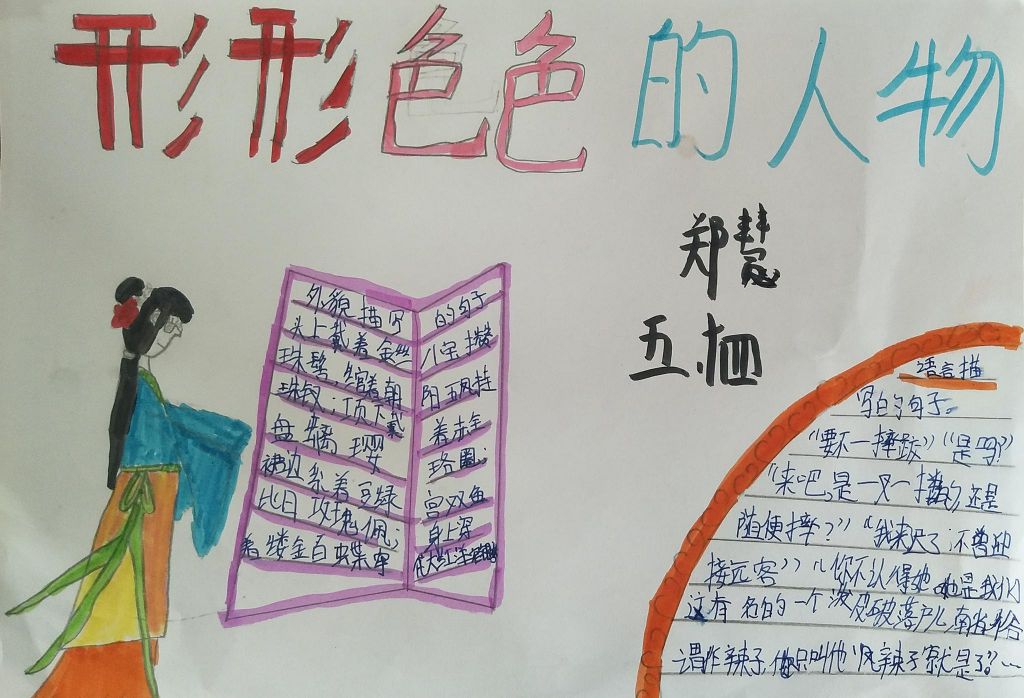 形形色色的人物
郑慧
五
外貌描写 的句子
头上戴着金丝 八宝攒
珠髻,绾着朝 阳五凤挂
珠钗;项下戴 着赤金
盘螭璎 珞圈;
裙边系着豆绿 宫双鱼
比目玫瑰佩; 身上
着缕金百蝶穿 花大红洋
语言描
写的句子。
“要不一摔跤”“是吗?”
“来吧,是一叉一摔的,还是
随便摔?”“我来迟了,不曾迎
接远客”“你不认得她,她是我们
这有名的一个泼皮破落户儿,南省俗
谓作辣子,你只叫他“凤辣子”就是了。”…